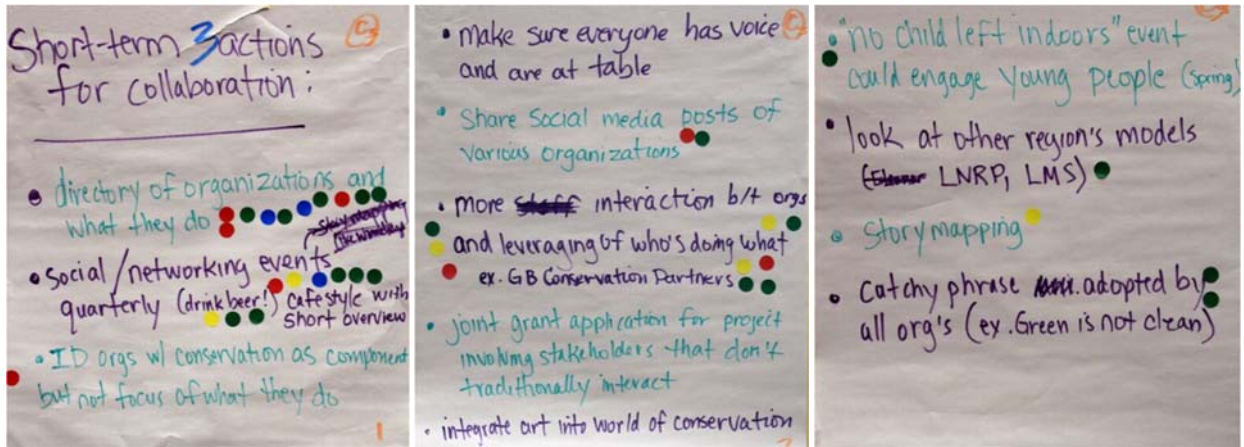 Short-term 3 actions
for collaboration:
• directory of organizations and
what they do
• social/networking events
quarterly (drink beer!) cafe style with
short overview
• ID orgs w/ conservation as component
but not focus of what they do
1
• make sure everyone has voice
and are at table
• Share Social media posts of
various organizations
• more staff interaction b/t orgs
and leveraging of who's doing what
ex. GB Conservation Partners
• joint grant application for project
involving stakeholders that don't
traditionally interact
• integrate art into world of conservation
2
• "no child left indoors" event
could engage young people (spring)
• look at other region's models
(LNRP, LMS)
• Story mapping
• Catchy phrase adopted by
all org's (ex. Green is not clean)